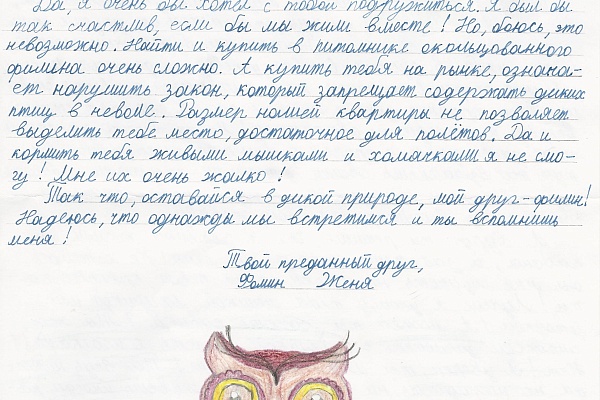 Да, я очень бы хотел с тобой подружиться. Я был бы
так счастлив, если бы мы жили вместе! Но, боюсь, это
невозможно. Найти и купить в питомнике окольцованного
филина очень сложно. А купить тебя на рынке, означа-
ет нарушить закон, который запрещает содержать диких
птиц в неволе. Размер нашей квартиры не позволяет
выделить тебе место, достаточное для полётов. Да и
кормить тебя живыми мышками и хомячками я не смо-
гу! Мне их очень жалко!
Так что, оставайся в дикой природе, мой друг-филин!
Надеюсь, что однажды мы встретимся и ты вспомнишь
меня!
Твой преданный друг,
Фомин Женя